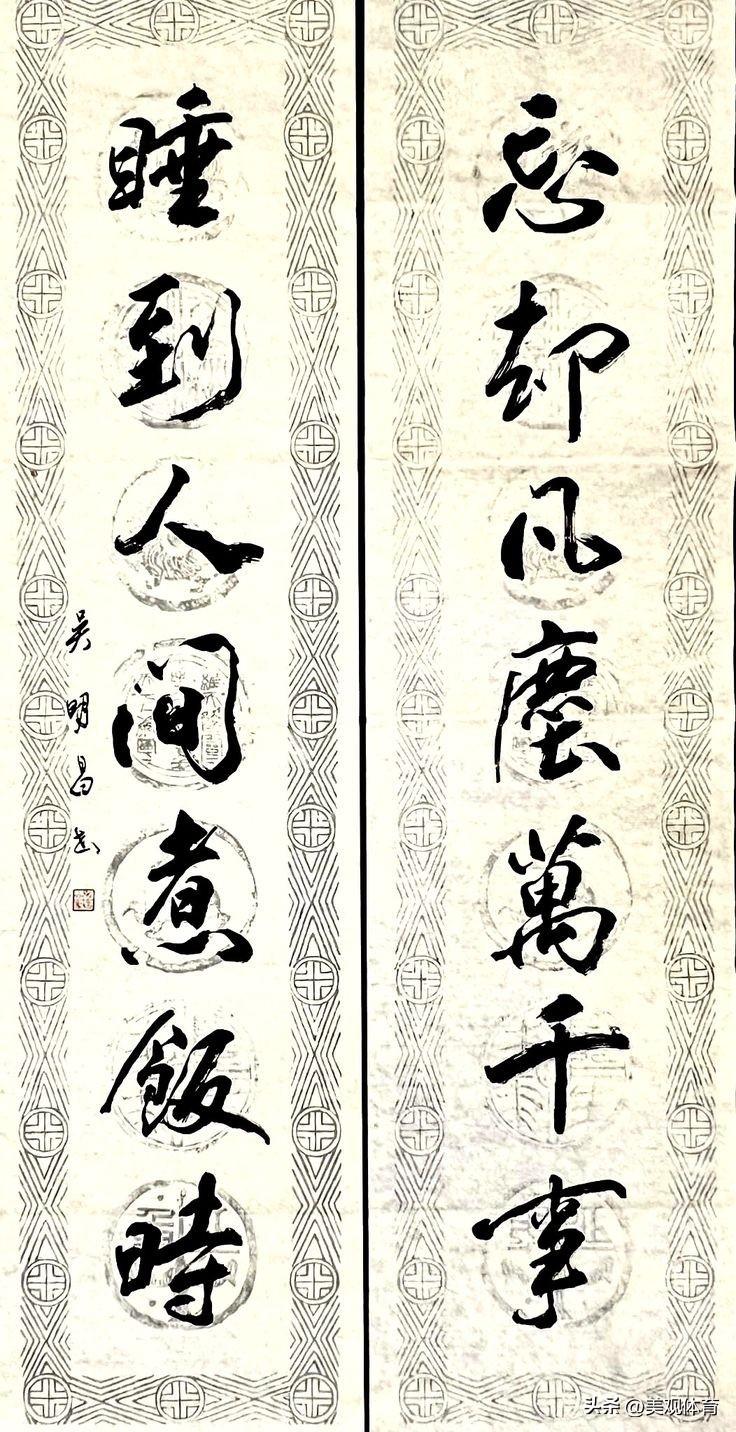 忘却凡塵萬千事
睡到人间煮飯時
吴明昌书
头条 @美观体育